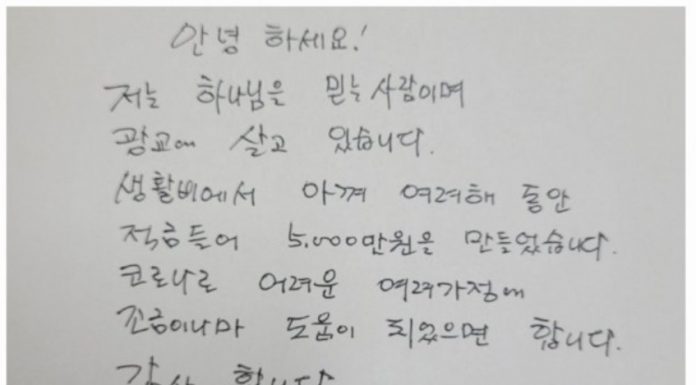 안녕 하세요!
저는 하나님을 믿는 사람이며
광교에 살고 있습니다.
생활비에서 아껴 여러해 동안
적금들어 5.000만원을 만들었습니다.
코로나로 어려운 여러가정에
조금이나마 도움이 되었으면 합니다.
감사 합니다